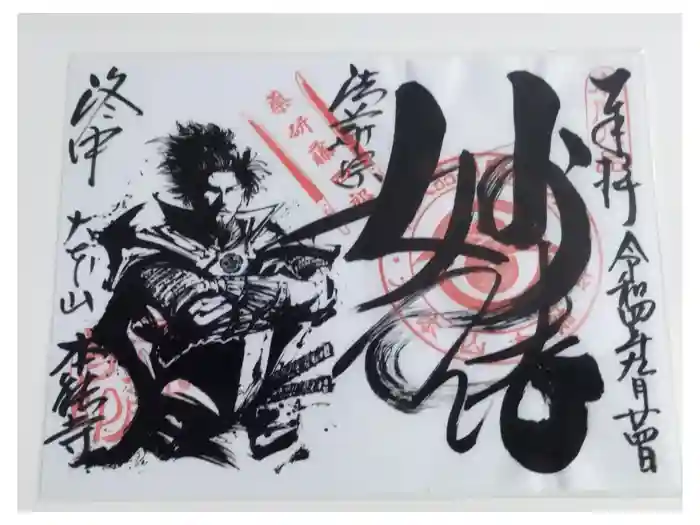 奉拝 令和四年九月廿四日
妙法
薬研藤四郎
洛中
大本山 本能寺